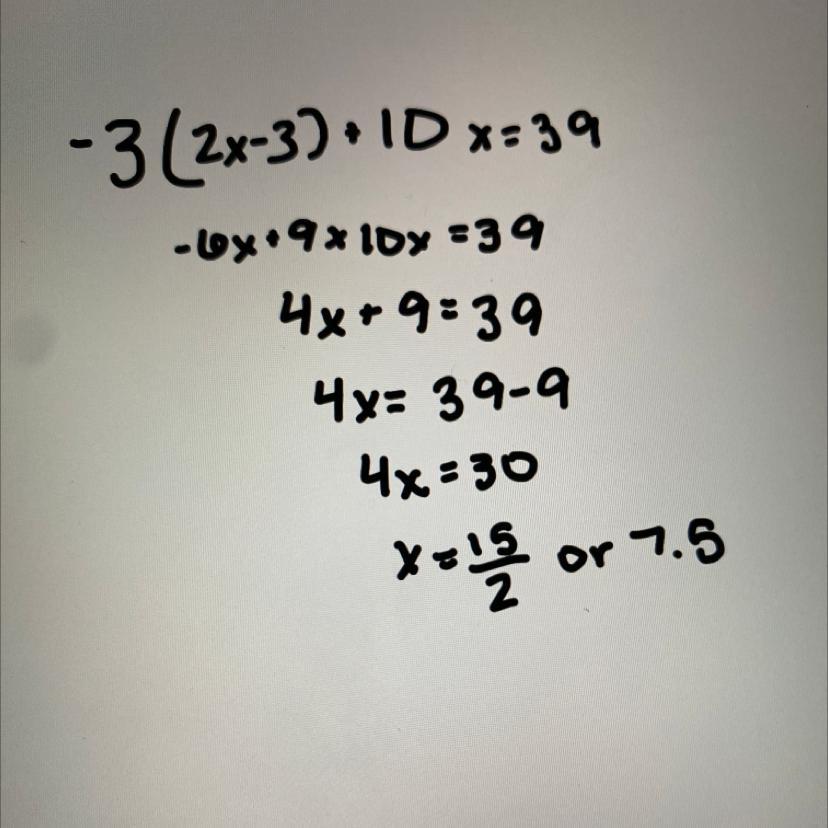 -3(2x-3)+10x=39
-6x+9x10x=39
4x+9=39
4x=39-9
4x=30
x=15/2 or 7.5